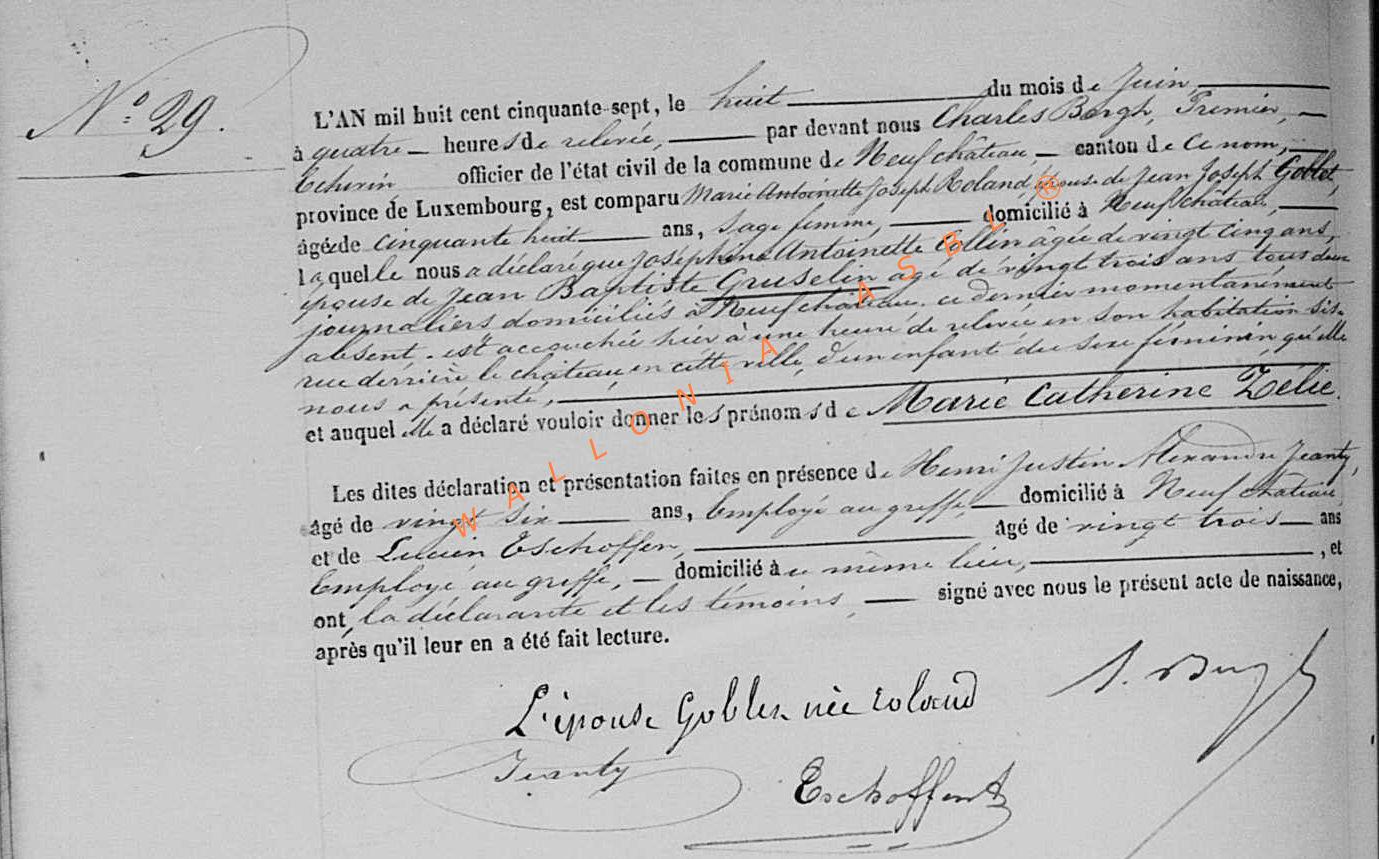 N° 29.
L'AN mil huit cent cinquante-sept, le huit du mois de Juin,
à quatre heures de relevée, par devant nous Charles Bergh, Premier,
Echevin officier de l'état civil de la commune de Neufchâteau, canton de ce nom,
province de Luxembourg, est comparu Marie Antoinette Joseph Roland, épouse de Jean Joseph Goblet,
âgée de cinquante huit ans, sage femme, domicilié à Neufchâteau,
laquelle nous a déclaré que Joséphine Antoinette Collin âgée de vingt cinq ans,
épouse de Jean Baptiste Gruselin âgé de vingt trois ans tous deux
journaliers domiciliés à Neufchâteau, ce dernier momentanément
absent, est accouchée hier à une heure de relevée en son habitation sise
rue derrière le château en cette ville, d'un enfant du sexe féminin, qu'elle
nous a présenté,
et auquel elle a déclaré vouloir donner les prénoms de Marie Catherine Zélie.
Les dites déclaration et présentation faites en présence de Henri Justin Alexandre Jeanty,
âgé de vingt six ans, Employé au greffe, domicilié à Neufchâteau
et de Lucien Eschoffen, âgé de vingt trois ans
Employé au greffe, domicilié à ce même lieu, , et
ont, la déclarante et les témoins, signé avec nous le présent acte de naissance,
après qu'il leur en a été fait lecture.
L'épouse Goblet née roland
Jeanty
Eschoffen
WALLONIA ASBL ®